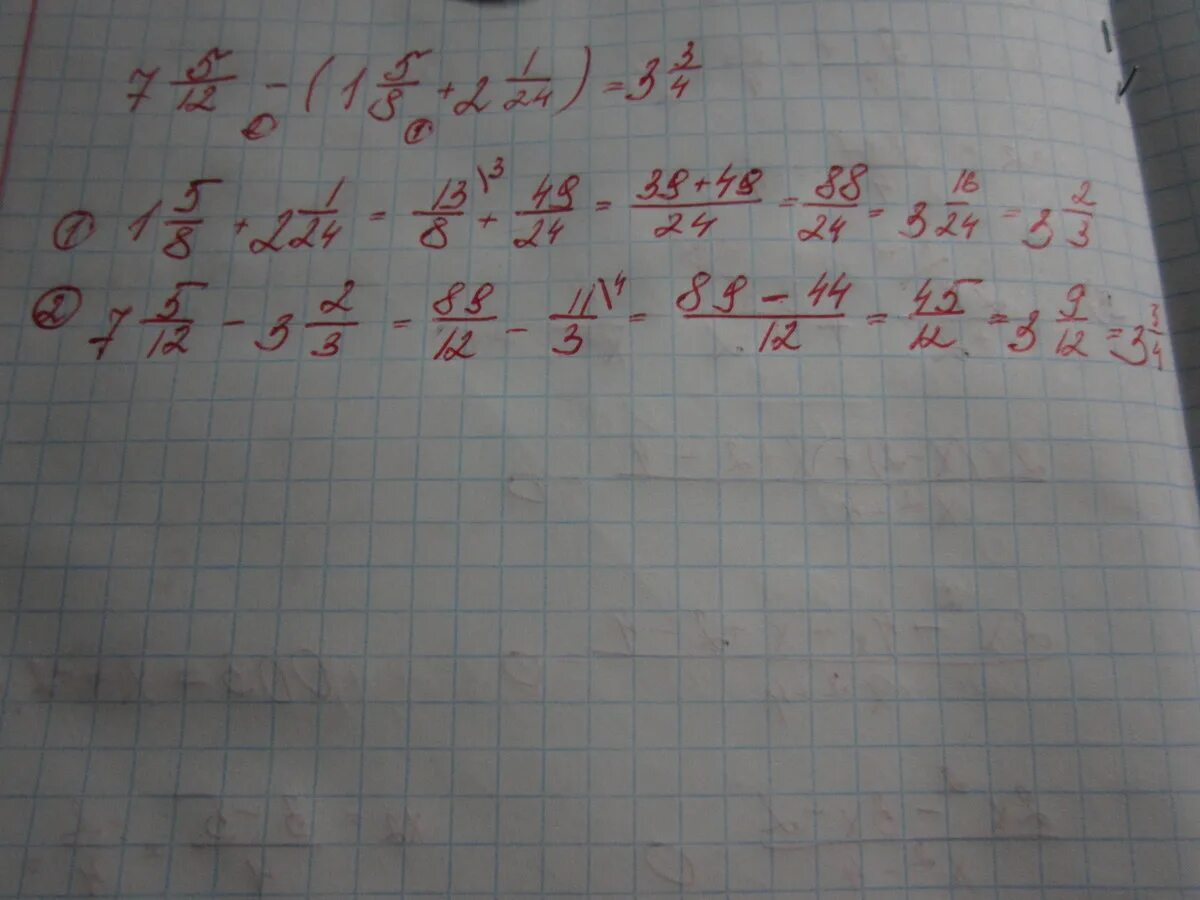 7 5/12 - (1 5/8 + 2 1/24) = 3 3/4
② ①
① 1 5/8 + 2 1/24 = 13/8 \3 + 49/24 = (39 + 49)/24 = 88/24 = 3 16/24 = 3 2/3
② 7 5/12 - 3 2/3 = 89/12 - 11/3 \4 = (89 - 44)/12 = 45/12 = 3 9/12 = 3 3/4